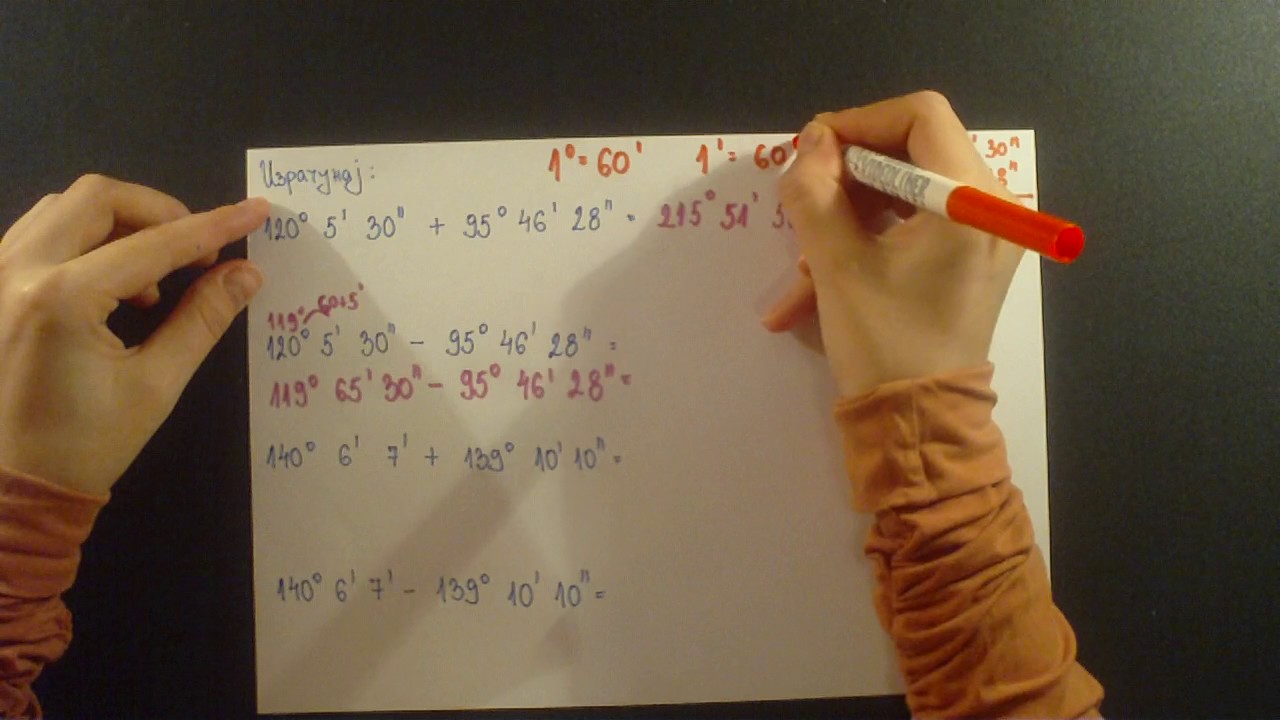 Израчунај: 1° = 60' 1' = 60' 30"
120° 5' 30" + 95° 46' 28" = 215° 51'
119° 60+5'
120° 5' 30" - 95° 46' 28" =
119° 65' 30" - 95° 46' 28" =
140° 6' 7' + 139° 10' 10" =
140° 6' 7' - 139° 10' 10" =